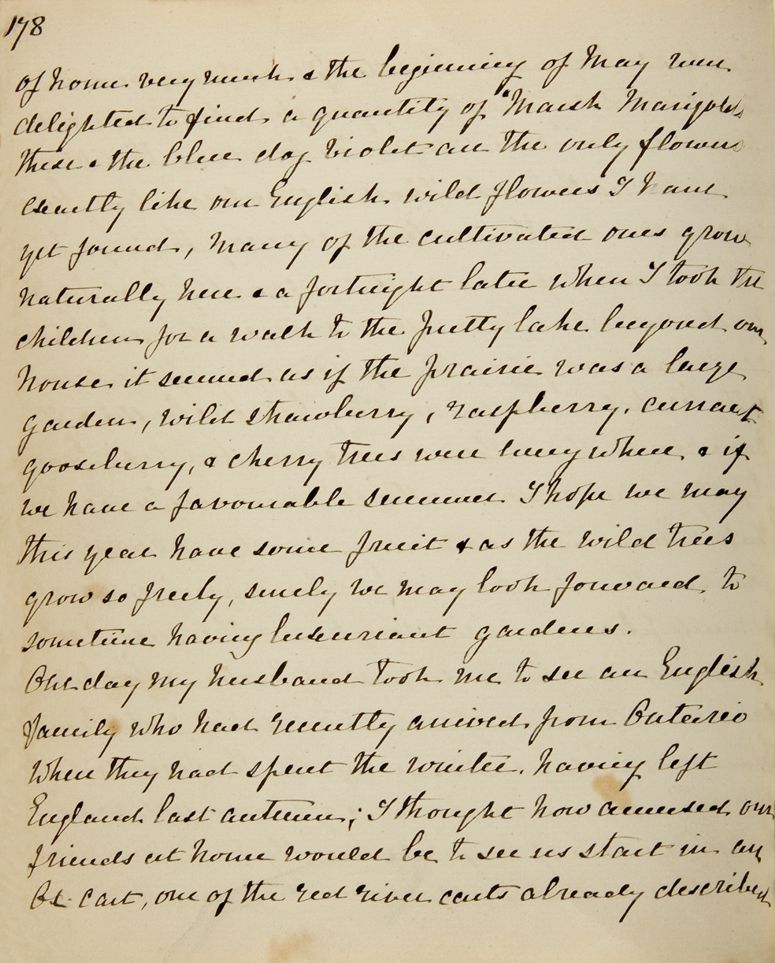 178
of home very much & the beginning of May was
delighted to find a quantity of "Marsh Marigolds
these & the blue dog violet are the only flowers
exactly like our English wild flowers I have
yet found, many of the cultivated ones grow
naturally here & a fortnight later when I took the
children for a walk to the pretty lake beyond our
house it seemed as if the prairie was a large
garden, wild strawberry, raspberry, currant
gooseberry, & cherry trees were everywhere & if
we have a favourable summer I hope we may
this year have some fruit & as the wild trees
grow so freely, surely we may look forward to
sometime having luxuriant gardens.
One day my husband took me to see an English
family who had recently arrived from Ontario
where they had spent the winter, having left
England last autumn; I thought how amused our
friends at home would be to see us start in an
Ox cart, one of the red river carts already described